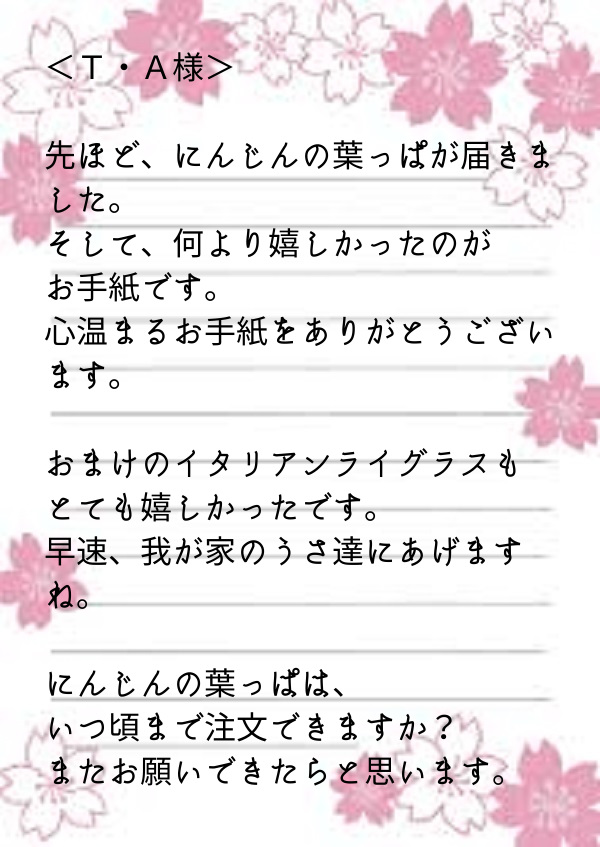 ＜Ｔ・Ａ様＞
先ほど、にんじんの葉っぱが届きま
した。
そして、何より嬉しかったのが
お手紙です。
心温まるお手紙をありがとうござい
ます。
おまけのイタリアンライグラスも
とても嬉しかったです。
早速、我が家のうさ達にあげます
ね。
にんじんの葉っぱは、
いつ頃まで注文できますか？
またお願いできたらと思います。